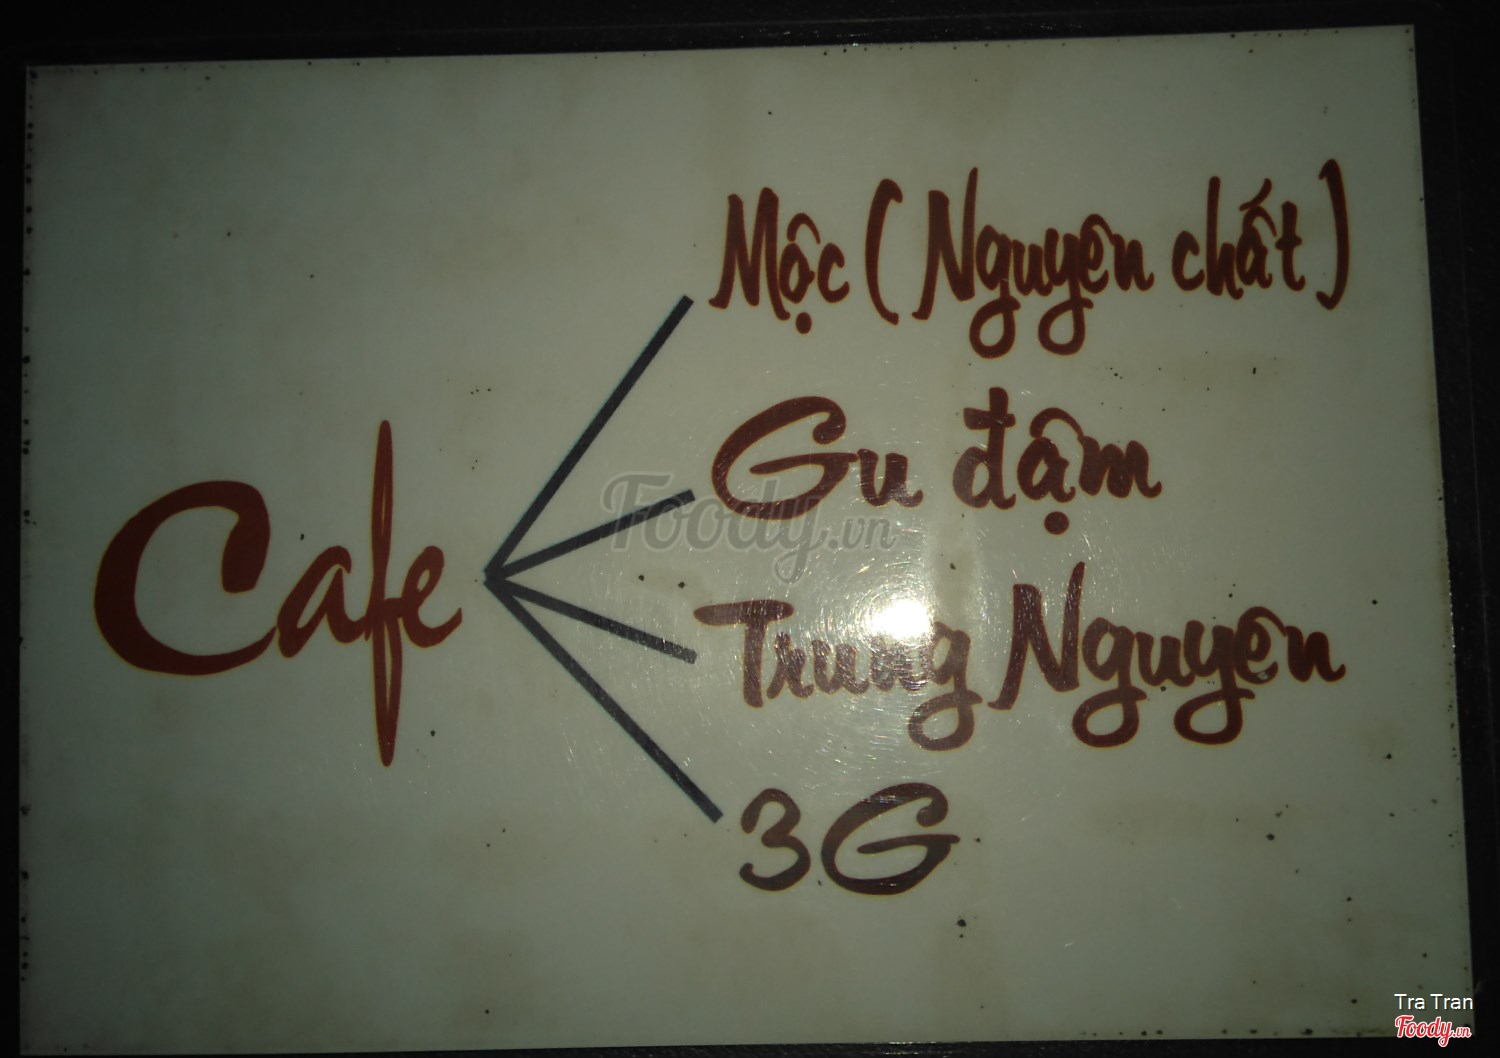 Cafe
Mộc (Nguyên chất)
Gu đậm
Trung Nguyên
3G
Foody.vn
Tra Tran
Foody.vn